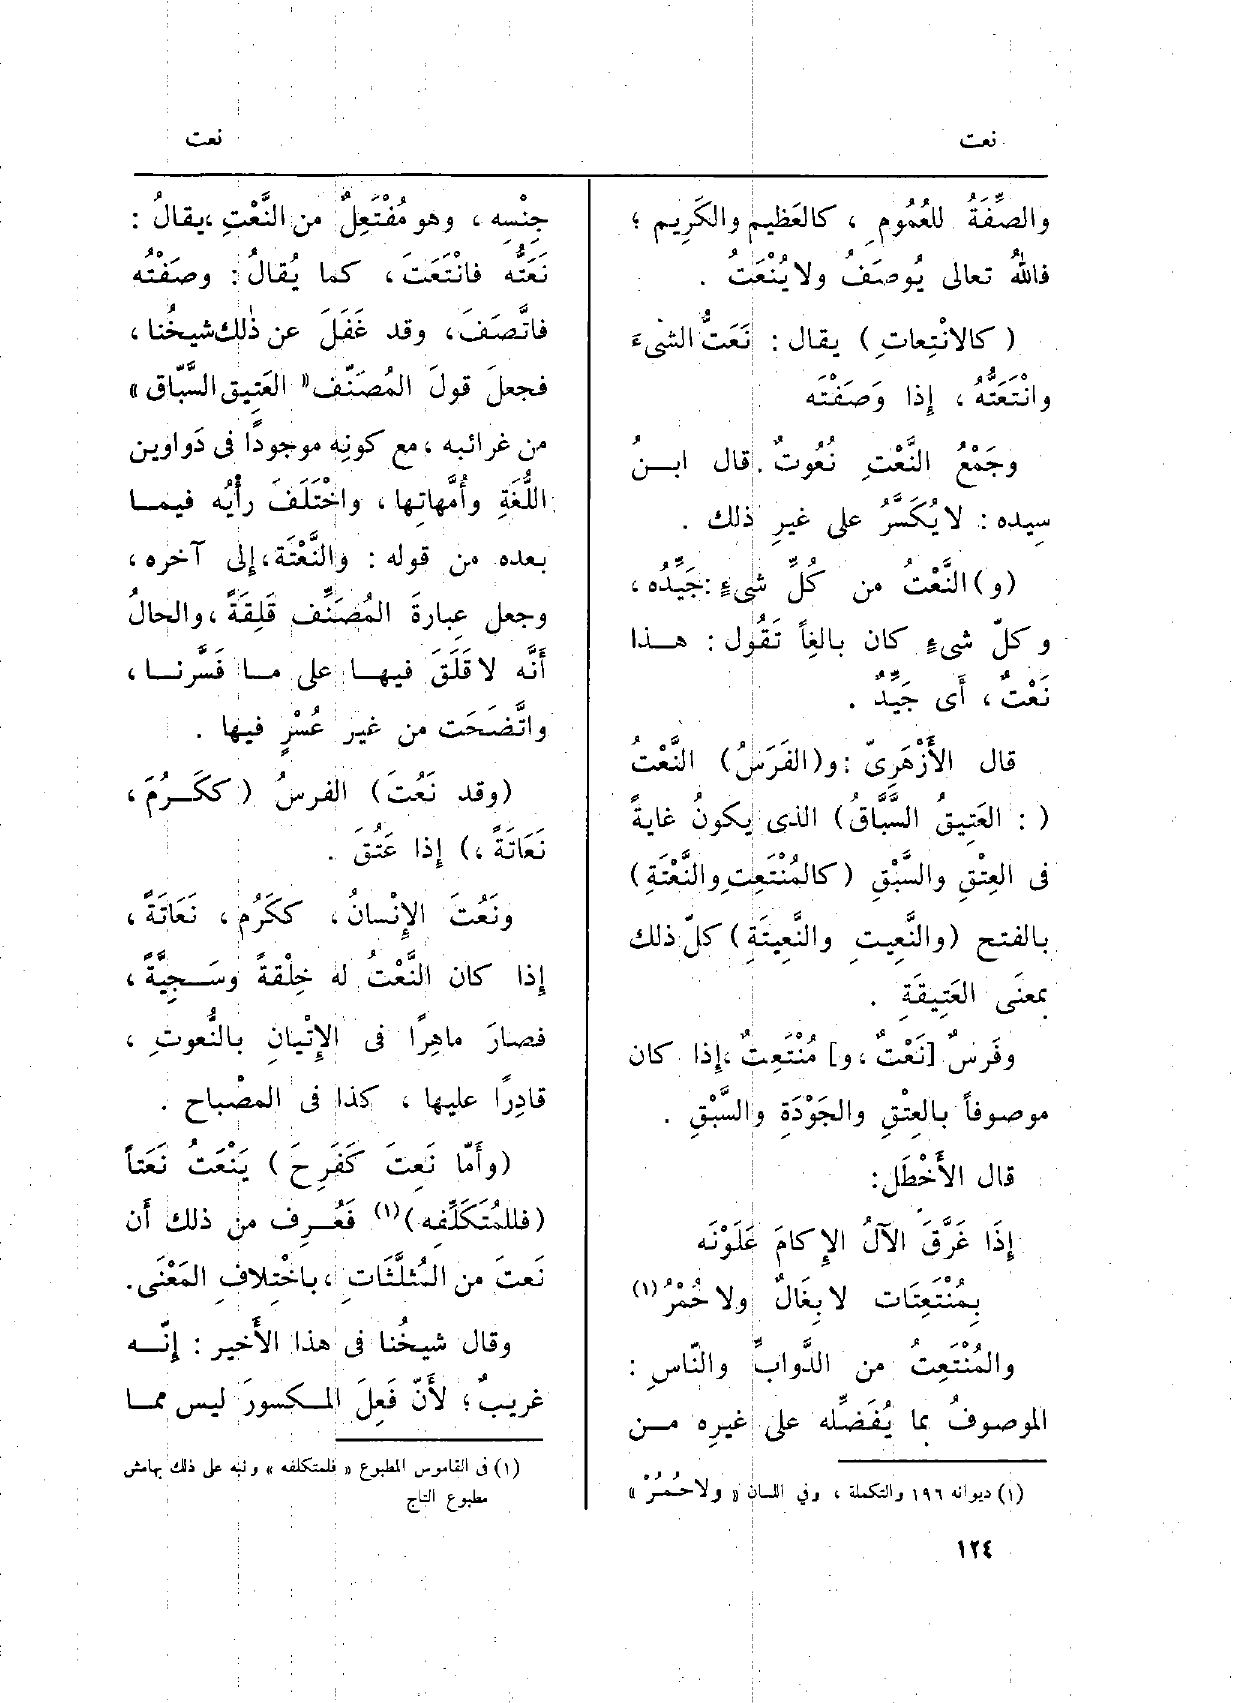 نعت
والصِّفَةُ للعُمُومِ ، كالعَظِيم والكَرِيم ؛
فاللهُ تعالى يُوصَفُ ولا يُنْعَتُ .
( كالانْتِعاتِ ) يقال : نَعَتُّ الشىْءَ
وانْتَعَتُّهُ ، إِذا وَصَفْتَه
وجَمْعُ النَّعْتِ نُعُوتٌ . قال ابنُ
سِيده : لا يُكَسَّرُ على غيرِ ذلك .
(و) النَّعْتُ من كُلِّ شىءٍ : جَيِّدُه ،
وكلّ شىءٍ كان بالغاً تَقُول : هذا
نَعْتٌ ، أَى جَيِّدٌ .
قال الأَزْهَرِىّ : و(الفَرَسُ) النَّعْتُ
( : العَتِيقُ السَّبَّاقُ ) الذى يكونُ غايةً
فى العِتْقِ والسَّبْقِ ( كالمُنْتَعِتِ والنَّعْتَةِ )
بالفتح ( والنَّعِيتِ والنَّعِيتَةِ ) كلّ ذلك
بمعنَى العَتِيقَةِ .
وفَرَسٌ [نَعْتٌ ، و] مُنْتَعِتٌ ، إِذا كان
موصوفاً بالعِتْقِ والجَوْدَةِ والسَّبْقِ .
قال الأَخْطَل :
إِذَا غَرَّقَ الآلُ الإِكامَ عَلَوْنَه
بِمُنْتَعِتَات لا بِغَالٌ ولا حُمْرُ (١)
والمُنْتَعِتُ من الدَّوابِّ والنَّاسِ :
الموصوفُ بما يُفَضِّلُه على غيرِه من
(١) ديوانه ١٩٦ والتكملة ، وفي اللسان « ولا حُمُرْ »
١٢٤
نعت
جِنْسِه ، وهو مُفْتَعِلٌ من النَّعْتِ ، يقالُ :
نَعَتُّه فانْتَعَتَ ، كما يُقالُ : وصَفْتُه
فاتَّصَفَ ، وقد غَفَلَ عن ذٰلك شيخُنا ،
فجعلَ قولَ المُصَنّف « العَتِيق السَّبّاق »
من غرائبه ، مع كونِه موجودًا فى دَواوين
اللُّغَةِ وأُمَّهاتِها ، واخْتَلَفَ رأْيُه فيما
بعده من قوله : والنَّعْتَة ، إِلى آخره ،
وجعل عِبارةَ المُصَنِّف قَلِقَةً ، والحالُ
أَنَّه لا قَلَقَ فيها على ما فَسَّرنا ،
واتَّضَحَت من غير عُسْرٍ فيها .
(وقد نَعُتَ) الفرسُ ( ككَرُمَ ،
نَعَاتَةً ، ) إِذا عَتُقَ .
ونَعُتَ الإِنْسانُ ، ككَرُم ، نَعَاتَةً ،
إِذا كان النَّعْتُ له خِلْقةً وسَجِيَّةً ،
فصارَ ماهِرًا فى الإِتْيانِ بالنُّعوتِ ،
قادِرًا عليها ، كذا فى المصْباح .
(وأَمّا نَعِتَ كَفَرِحَ ) يَنْعَتُ نَعَتاً
(فللمُتَكَلِّفِه) (١) فَعُرِف من ذلك أَن
نَعتَ من المُثلَّثَاتِ ، باخْتِلافِ المَعْنَى .
وقال شيخُنا فى هذا الأَخير : إِنّه
غريبٌ ؛ لأَنّ فَعِلَ المكسورَ ليس مما
(١) فى القاموس المطبوع « فلمتكلفه » ونبه على ذلك بهامش
مطبوع التاج